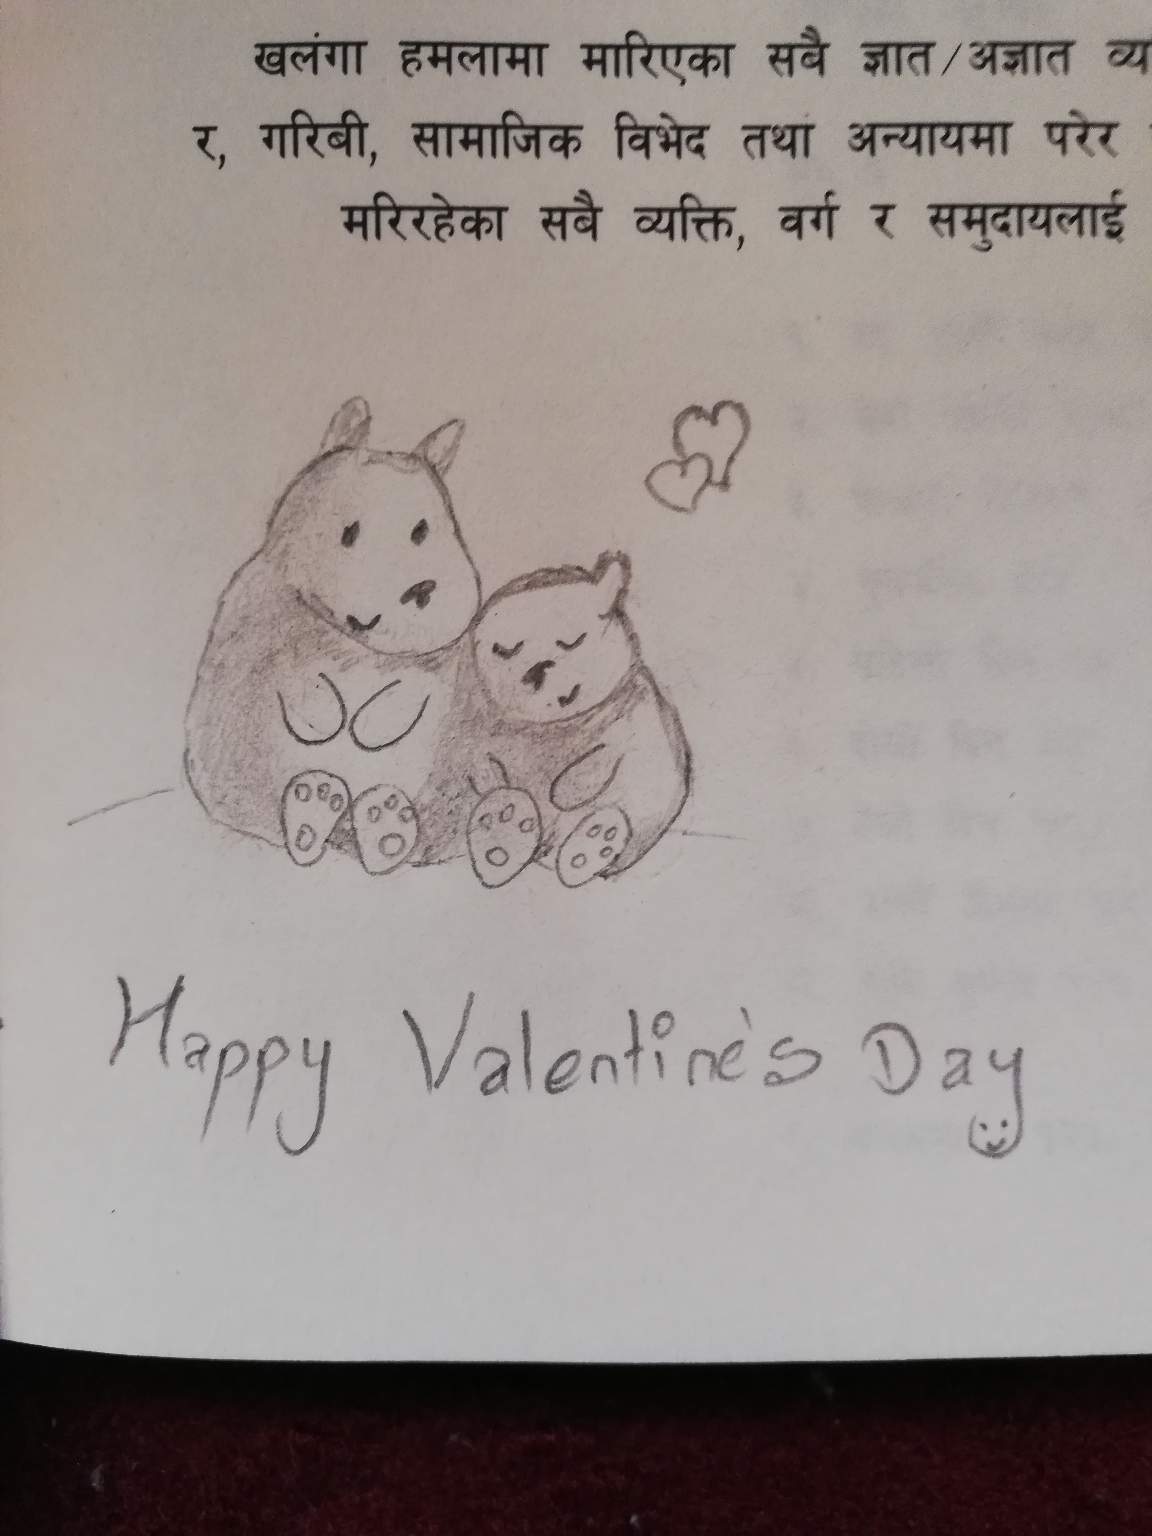 खलंगा हमलामा मारिएका सबै ज्ञात/अज्ञात
र, गरिबी, सामाजिक विभेद तथा अन्यायमा परेर
मरिरहेका सबै व्यक्ति, वर्ग र समुदायलाई
Happy Valentine's Day